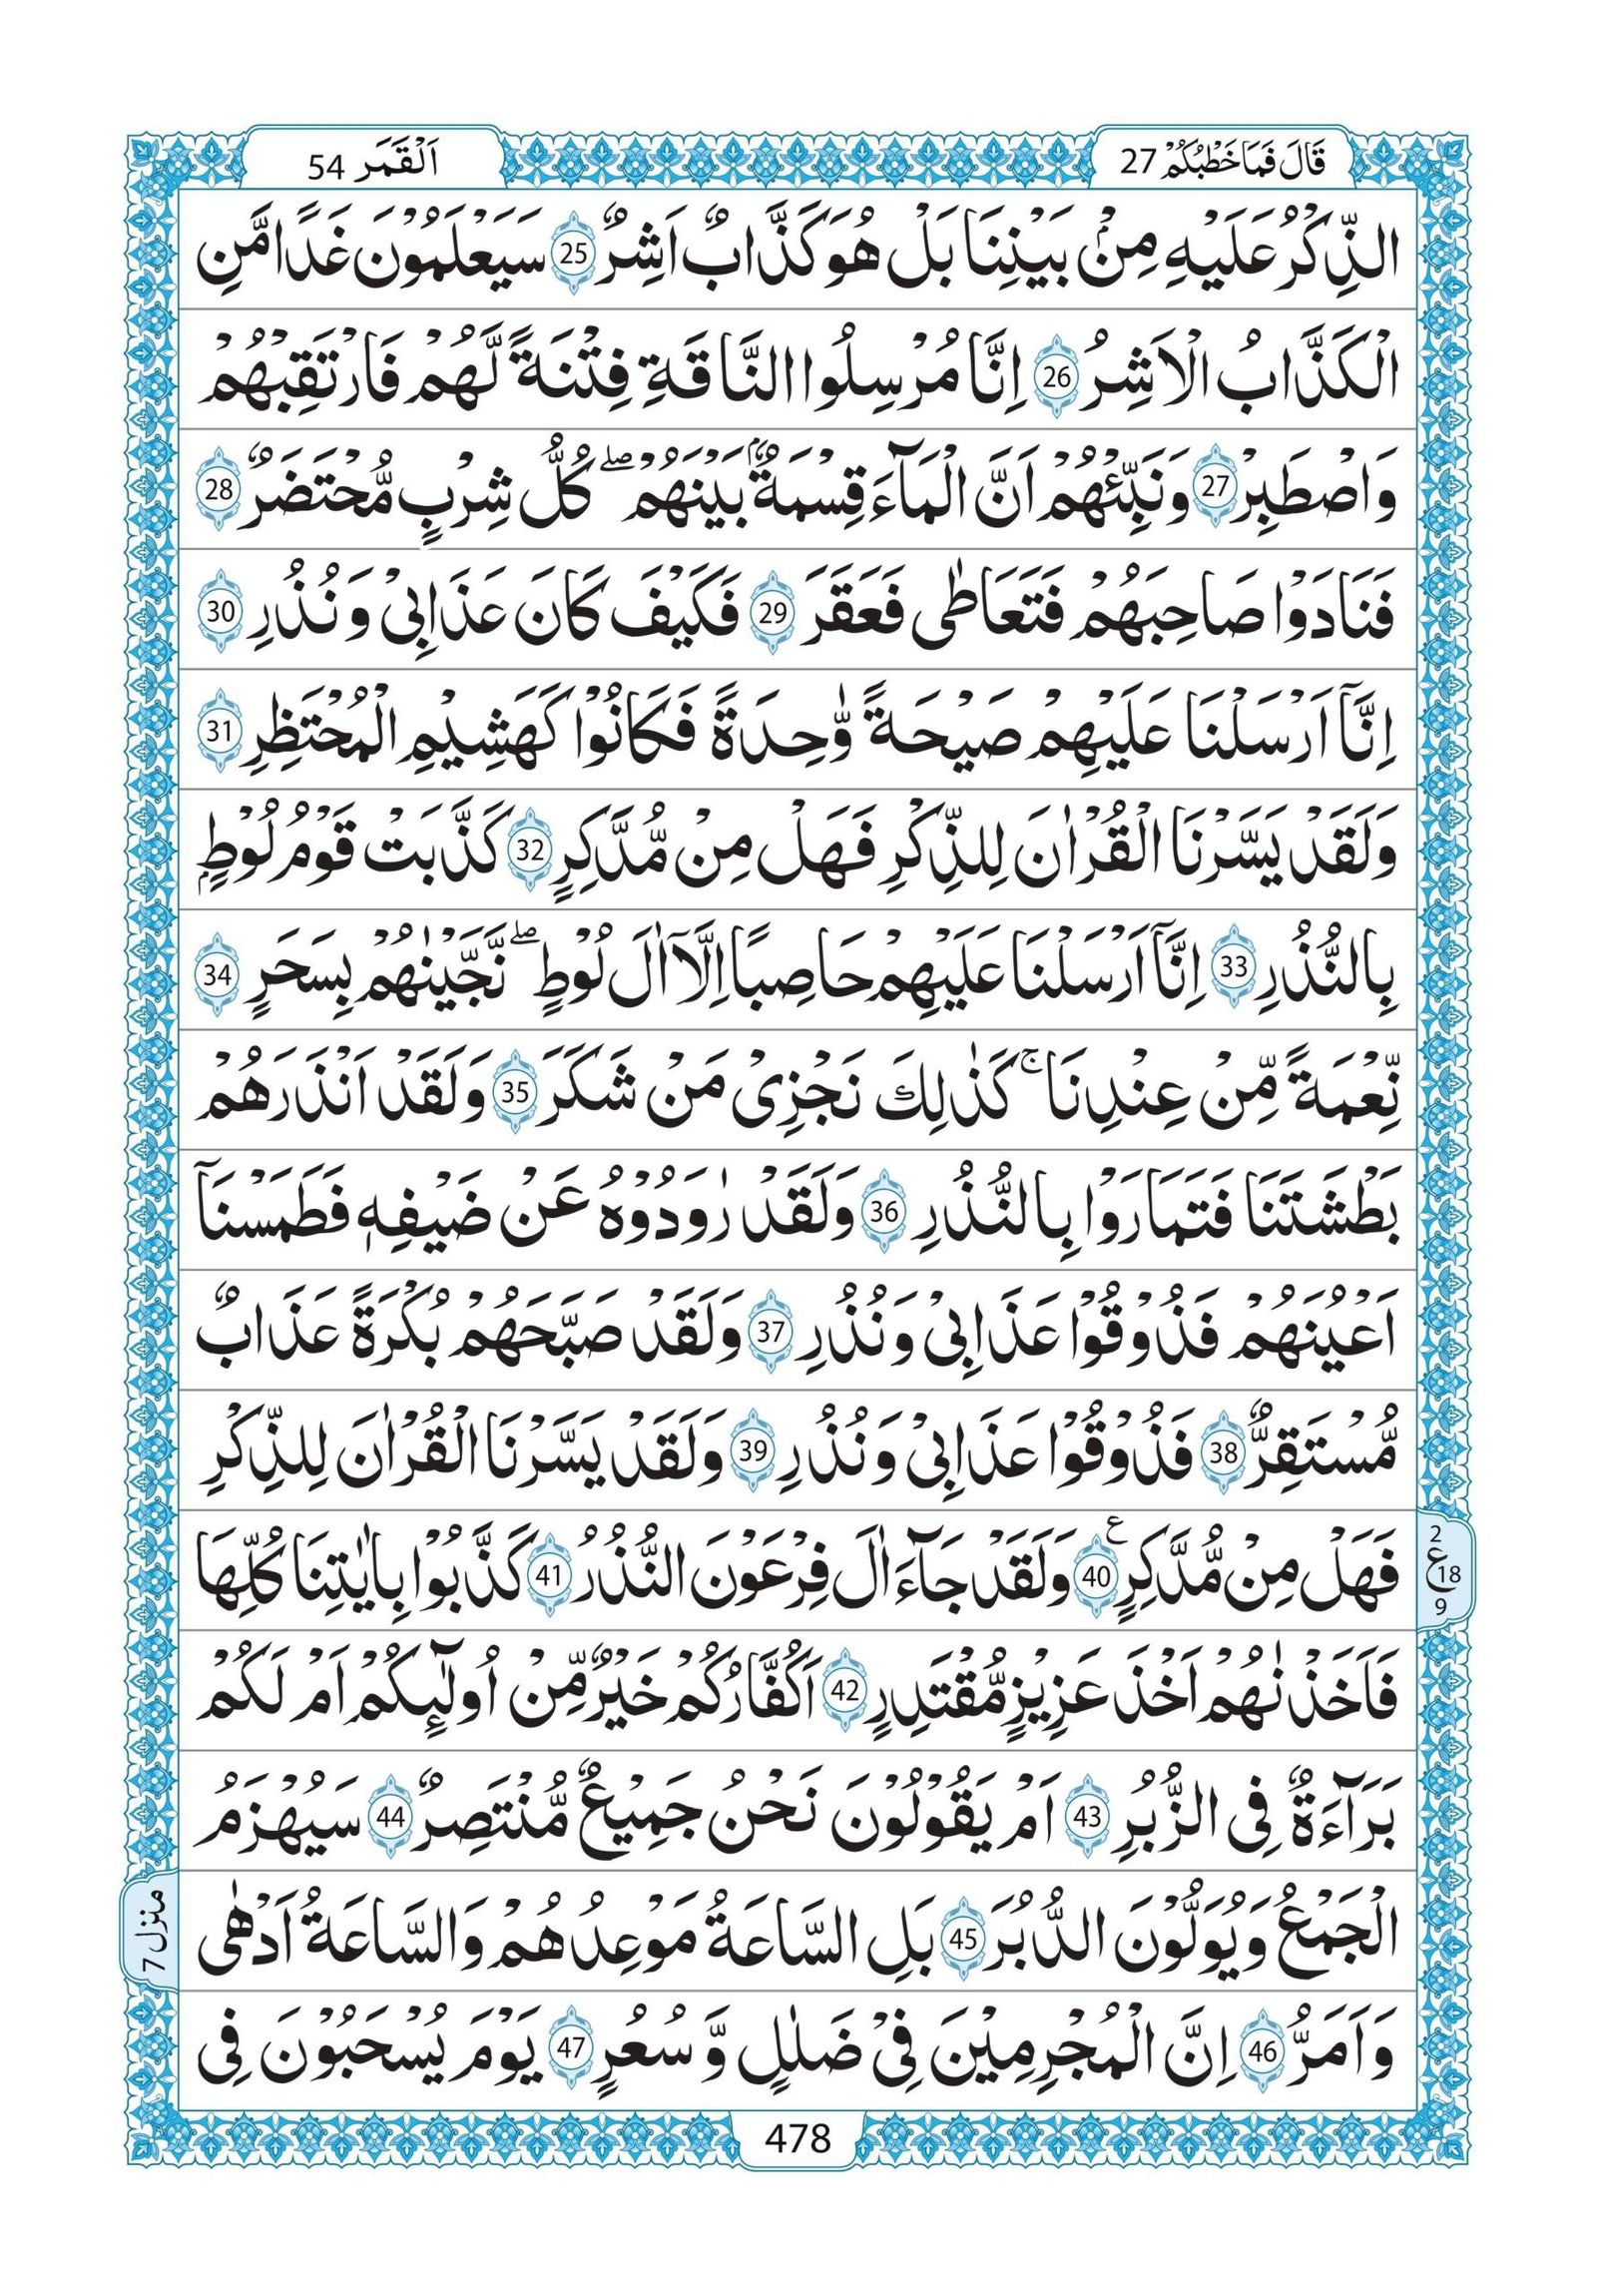 قَالَ فَمَا خَطْبُكُمْ 27
اَلْقَمَر 54
الذِّكْرُ عَلَيْهِ مِنْۢ بَيْنِنَا بَلْ هُوَ كَذَّابٌ اَشِرٌ 25 سَيَعْلَمُوْنَ غَدًا مَّنِ
الْكَذَّابُ الْاَشِرُ 26 اِنَّا مُرْسِلُوا النَّاقَةِ فِتْنَةً لَّهُمْ فَارْتَقِبْهُمْ
وَاصْطَبِرْ 27 وَنَبِّئْهُمْ اَنَّ الْمَآءَ قِسْمَةٌۢ بَيْنَهُمْ ۖ كُلُّ شِرْبٍ مُّحْتَضَرٌ 28
فَنَادَوْا صَاحِبَهُمْ فَتَعَاطٰى فَعَقَرَ 29 فَكَيْفَ كَانَ عَذَابِىْ وَنُذُرِ 30
اِنَّآ اَرْسَلْنَا عَلَيْهِمْ صَيْحَةً وَّٰحِدَةً فَكَانُوْا كَهَشِيْمِ الْمُحْتَظِرِ 31
وَلَقَدْ يَسَّرْنَا الْقُرْاٰنَ لِلذِّكْرِ فَهَلْ مِنْ مُّدَّكِرٍ 32 كَذَّبَتْ قَوْمُ لُوْطٍۭ
بِالنُّذُرِ 33 اِنَّآ اَرْسَلْنَا عَلَيْهِمْ حَاصِبًا اِلَّآ اٰلَ لُوْطٍ ۖ نَّجَّيْنٰهُمْ بِسَحَرٍ 34
نِّعْمَةً مِّنْ عِنْدِنَا ۚ كَذٰلِكَ نَجْزِىْ مَنْ شَكَرَ 35 وَلَقَدْ اَنْذَرَهُمْ
بَطْشَتَنَا فَتَمَارَوْا بِالنُّذُرِ 36 وَلَقَدْ رٰوَدُوْهُ عَنْ ضَيْفِهٖ فَطَمَسْنَآ
اَعْيُنَهُمْ فَذُوْقُوْا عَذَابِىْ وَنُذُرِ 37 وَلَقَدْ صَبَّحَهُمْ بُكْرَةً عَذَابٌ
مُّسْتَقِرٌّ 38 فَذُوْقُوْا عَذَابِىْ وَنُذُرِ 39 وَلَقَدْ يَسَّرْنَا الْقُرْاٰنَ لِلذِّكْرِ
فَهَلْ مِنْ مُّدَّكِرٍ ع 40 وَلَقَدْ جَآءَ اٰلَ فِرْعَوْنَ النُّذُرُ 41 كَذَّبُوْا بِاٰيٰتِنَا كُلِّهَا
2
ع 18
9
فَاَخَذْنٰهُمْ اَخْذَ عَزِيْزٍ مُّقْتَدِرٍ 42 اَكُفَّارُكُمْ خَيْرٌ مِّنْ اُولٰٓئِكُمْ اَمْ لَكُمْ
بَرَآءَةٌ فِى الزُّبُرِ 43 اَمْ يَقُوْلُوْنَ نَحْنُ جَمِيْعٌ مُّنْتَصِرٌ 44 سَيُهْزَمُ
الْجَمْعُ وَيُوَلُّوْنَ الدُّبُرَ 45 بَلِ السَّاعَةُ مَوْعِدُهُمْ وَالسَّاعَةُ اَدْهٰى
منزل 7
وَاَمَرُّ 46 اِنَّ الْمُجْرِمِيْنَ فِىْ ضَلٰلٍ وَّسُعُرٍ 47 يَوْمَ يُسْحَبُوْنَ فِى
478